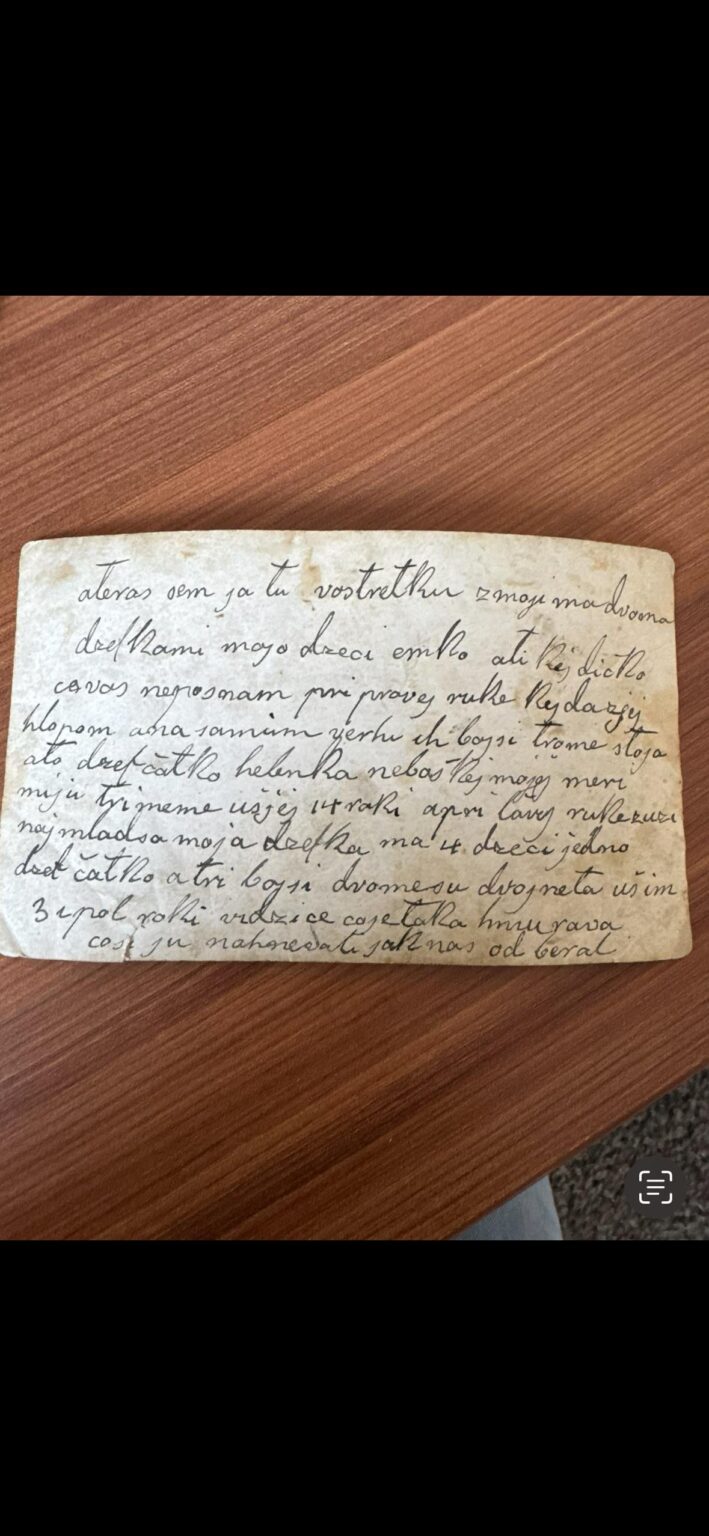 ateras sem ja tu vostretku zmojimadvoma
dzefkami mojo dzeci emko ati Kej dicko
covas neposnam pri pravej ruke Kejdazjej
hlopom ana samim verhu ih bojsi trome stoja
ato dzefčatko helenka nebos Kej mojej meri
miju trimeme ušjej 14 roki apri lavej ruke zuzi
najmladsa moja dzefka ma 4 dzeci jedno
dzefčatko a tri bojsi dvomesu dvojneta ušim
3 ipol roki vidzice cojetaka hmurava
cosi ju nahnevali jak nas od beral